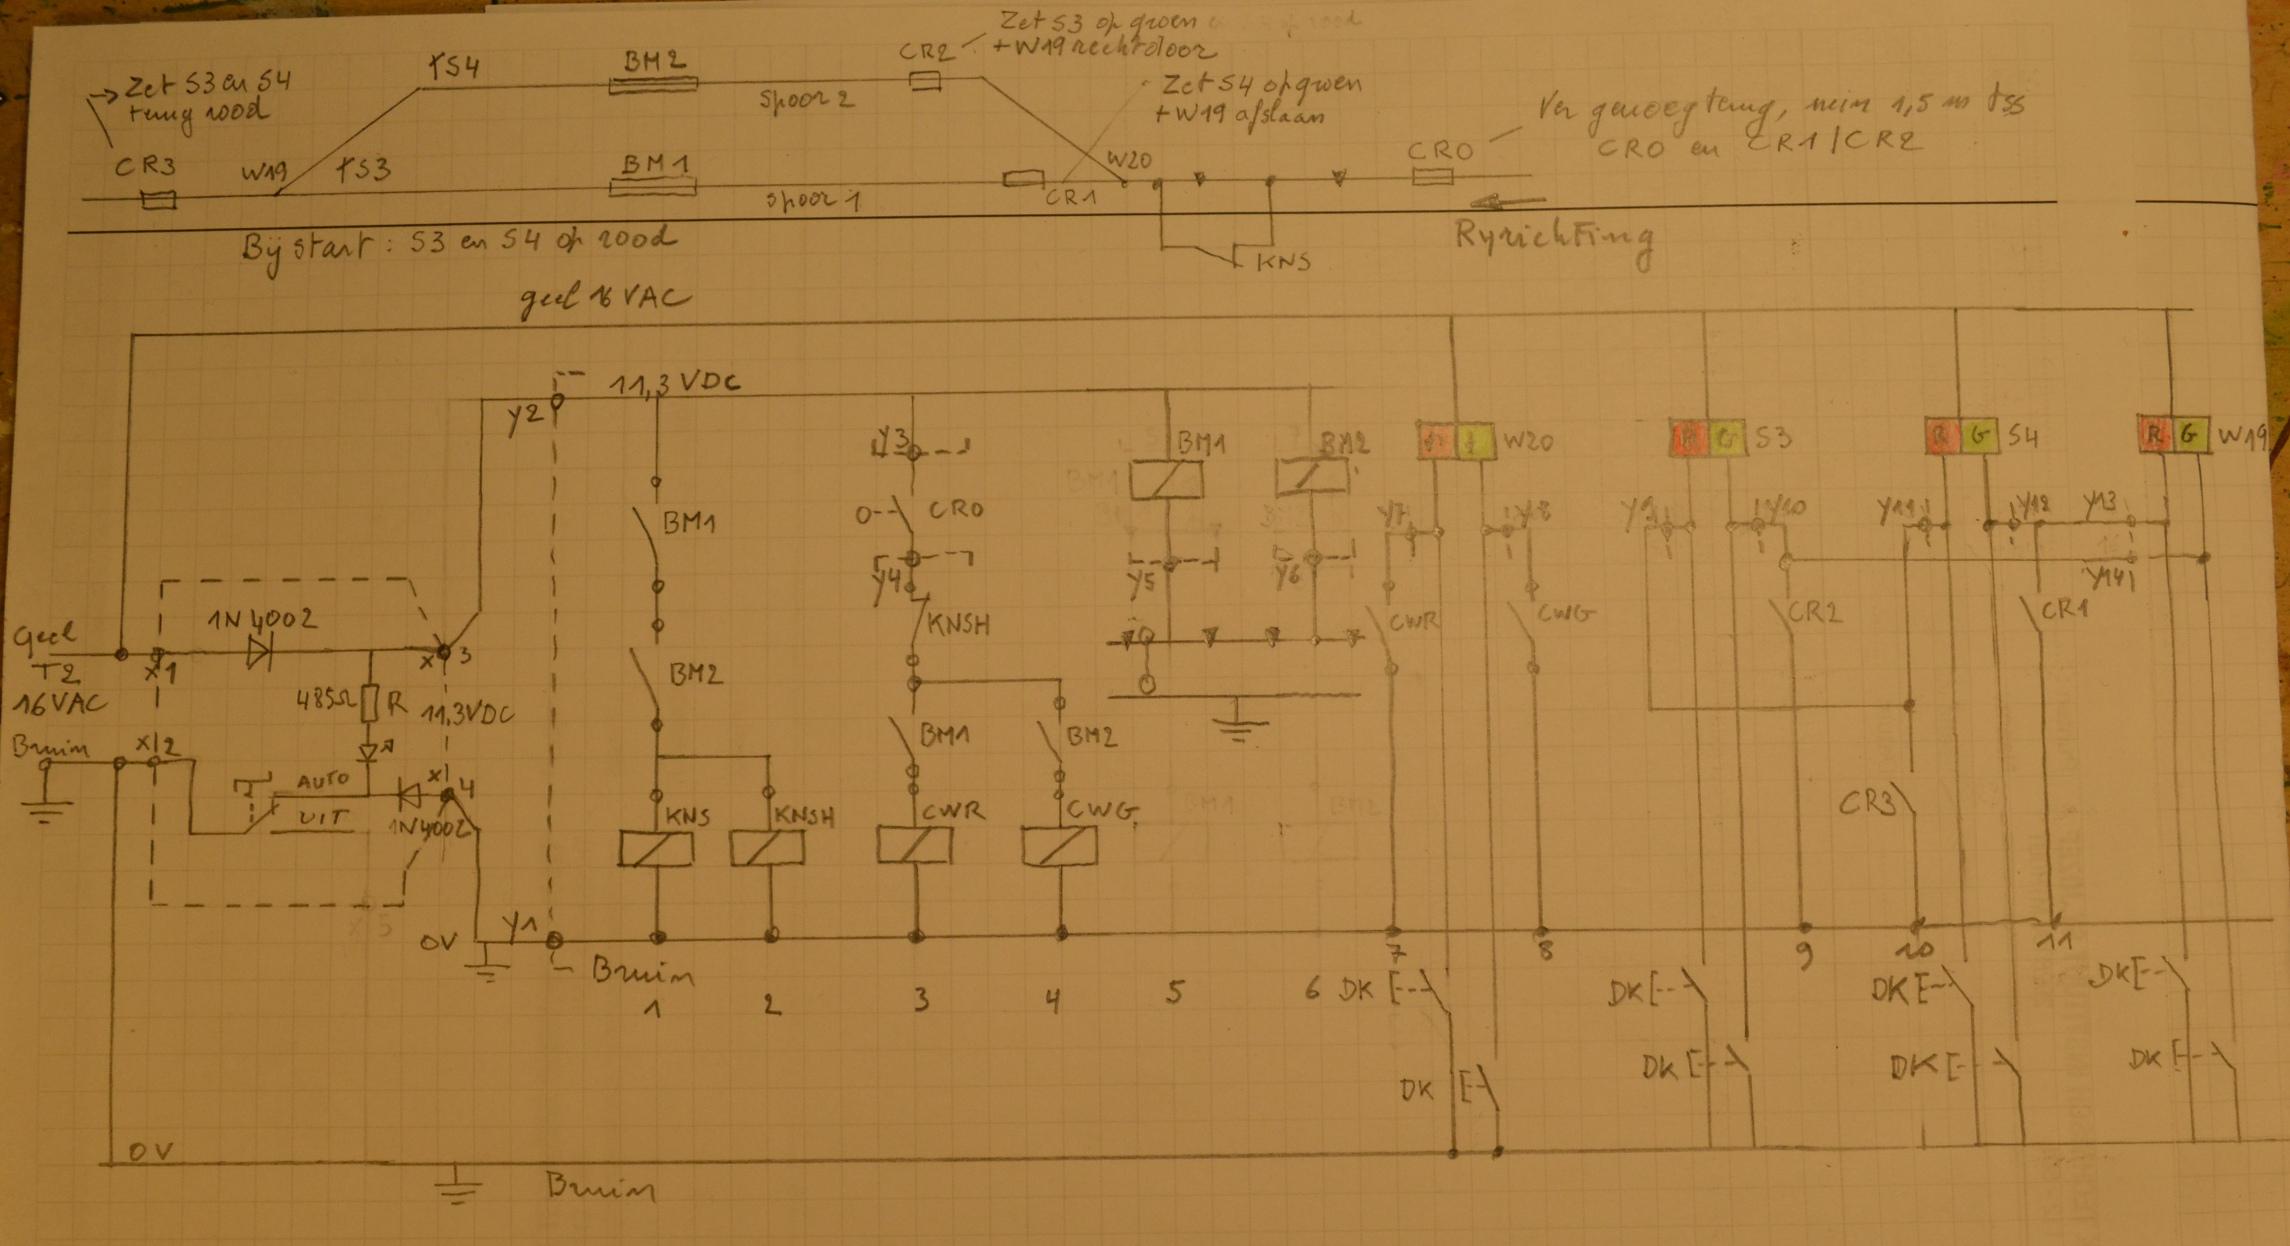 Zet S3 op groen
+W19 rechtdoor
CR2
→ Zet S3 en S4
terug rood
S4
BM2
Spoor 2
Zet S4 op groen
+W19 afslaan
Ver genoeg terug, min 1,5 m tss
CR0 en CR1/CR2
CR3
W19
S3
BM1
Spoor 1
CR1
W20
CR0
Bij start: S3 en S4 op rood
KNS
Ryrichting
geel 16 VAC
Y2
11,3 VDC
Y3
CR0
Y4
KNSH
BM1
BM2
BM1
BM2
Y5
Y6
W20
R G S3
R G S4
R G W19
Y7
Y8
Y9
Y10
Y11
Y12
Y13
Y14
CWR
CWG
CR2
CR1
Geel
T2
16VAC
X1
1N4002
X3
485Ω R
11,3VDC
Bruin
X2
AUTO
UIT
X4
1N4002
BM1
BM2
KNS
KNSH
CWR
CWG
CR3
0V
Y1
Bruin
1 2 3 4 5 6
7 8 9 10 11
DK
DK
DK
DK
DK
DK
DK
DK
0V
Bruin